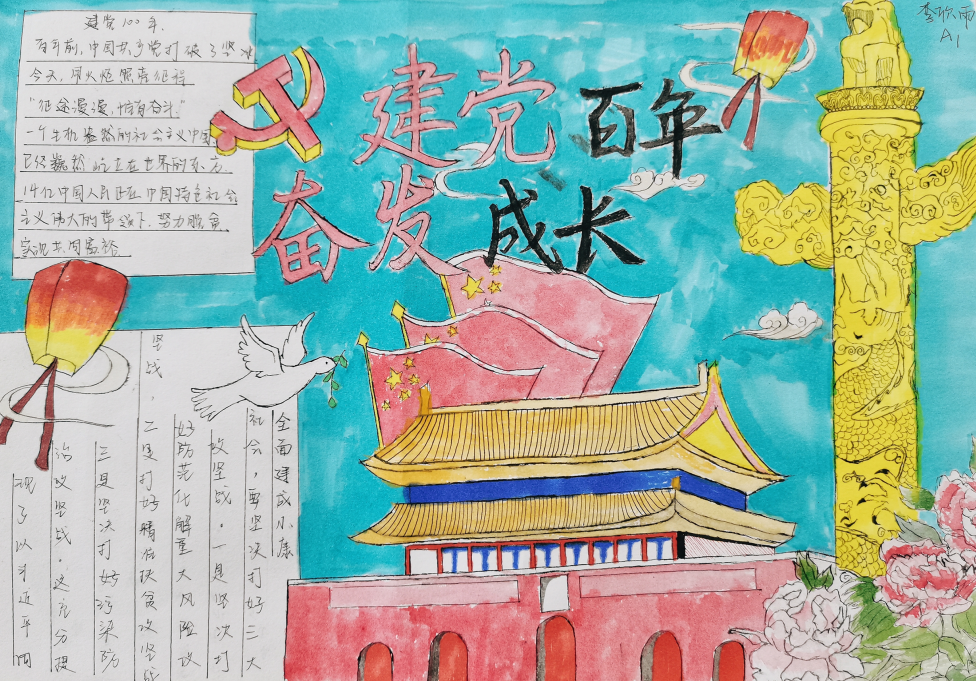 建党100年.
百年前,中国共产党打破了坚冰
今天,用火炬照亮征程
"征途漫漫,惟有奋斗."
一个生机盎然的社会主义中国
已经巍然屹立在世界的东方.
14亿中国人民正在中国特色社会
主义伟大的带领下.努力脱贫.
实现共同富裕
建党百年
奋发成长
李欣雨
A1
全面建成小康
社会,要坚决打好三大
攻坚战.一是坚决打
好防范化解重大风险攻
坚战.
二是打好精准扶贫攻坚战
三是坚决打好污染防
治攻坚战.这充分提
现了以习近平同